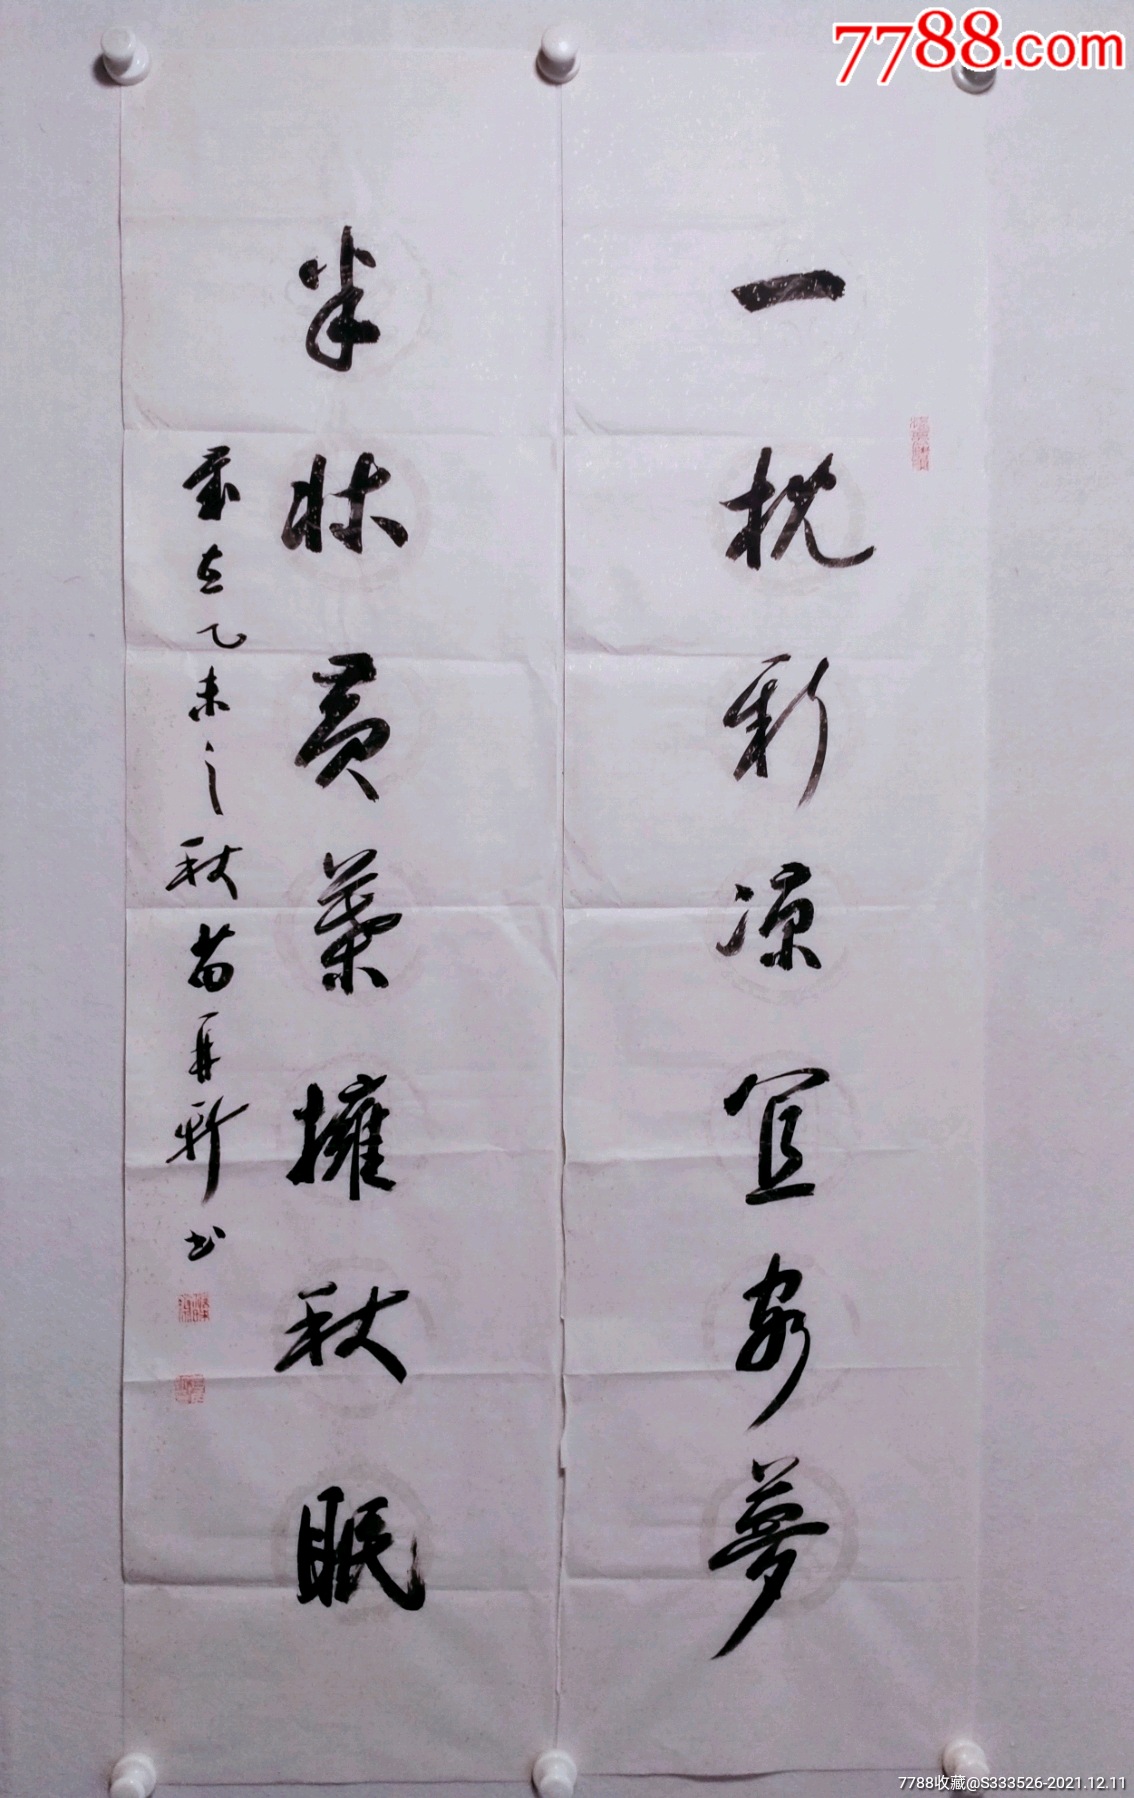 7788.com
一枕新凉宜客夢
半牀黄葉擁秋眠
歲在乙未之秋苗再新书
7788收藏@S333526-2021.12.11